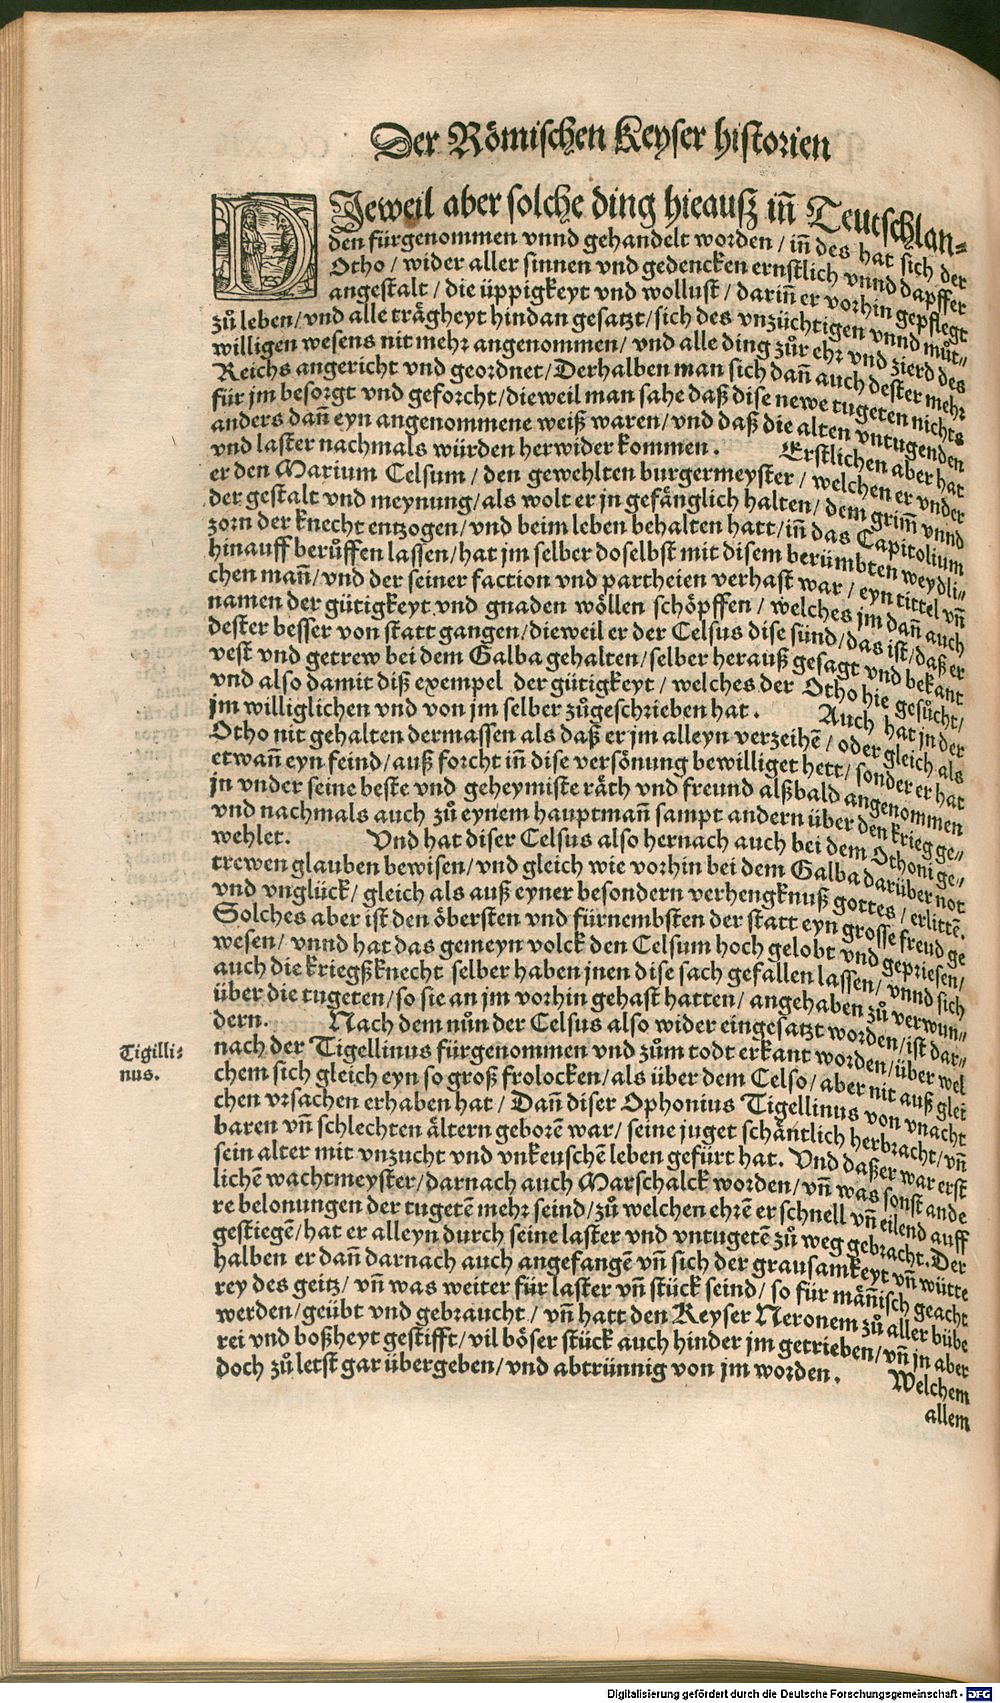 Der Römischen Keyser historien
DJeweil aber solche ding hieausz iñ Teutschlan-
den fürgenommen vnnd gehandelt worden / iñ des hat sich der
Otho / wider aller sinnen vnd gedencken ernstlich vnnd dapffer
angestalt / die üppigkeyt vnd wollust / dariñ er vorhin gepflegt
zů leben / vnd alle trägheyt hindan gesatzt / sich des vnzüchtigen vnnd můt-
willigen wesens nit mehr angenommen / vnd alle ding zůr ehr vnd zierd des
Reichs angericht vnd geordnet / Derhalben man sich dañ auch dester mehr
für jm besorgt vnd geforcht / dieweil man sahe daß dise newe tugeten nichts
anders dañ eyn angenommene weiß waren / vnd daß die alten vntugenden
vnd laster nachmals würden herwider kommen . Erstlichen aber hat
er den Marium Celsum / den gewehlten burgermeyster / welchen er vnder
der gestalt vnd meynung / als wolt er jn gefänglich halten / dem grim̃ vnnd
zorn der knecht entzogen / vnd beim leben behalten hatt / iñ das Capitolium
hinauff berůffen lassen / hat jm selber doselbst mit disem berümbten weydli-
chen mañ / vnd der seiner faction vnd partheien verhast war / eyn tittel vñ
namen der gütigkeyt vnd gnaden wöllen schöpffen / welches jm dañ auch
dester besser von statt gangen / dieweil er der Celsus dise sünd / das ist / daß er
vest vnd getrew bei dem Galba gehalten / selber herauß gesagt vnd bekant
vnd also damit diß exempel der gütigkeyt / welches der Otho hie gesůcht /
jm williglichen vnd von jm selber zůgeschrieben hat . Auch hat jn der
Otho nit gehalten dermassen als daß er jm alleyn verzeihẽ / oder gleich als
etwañ eyn feind / auß forcht iñ dise versönung bewilliget hett / sonder er hat
jn vnder seine beste vnd geheymiste räth vnd freund alßbald angenommen
vnd nachmals auch zů eynem hauptmañ sampt andern über den krieg ge-
wehlet. Vnd hat diser Celsus also hernach auch bei dem Othoni ge-
trewen glauben bewisen / vnd gleich wie vorhin bei dem Galba darüber not
vnd vnglück / gleich als auß eyner besondern verhengknuß gottes / erlittẽ.
Solches aber ist den öbersten vnd fürnembsten der statt eyn grosse freud ge
wesen / vnnd hat das gemeyn volck den Celsum hoch gelobt vnd gepriesen /
auch die kriegßknecht selber haben jnen dise sach gefallen lassen / vnnd sich
über die tugeten / so sie an jm vorhin gehast hatten / angehaben zů verwun-
dern. Nach dem nůn der Celsus also wider eingesatzt worden / ist dar-
nach der Tigellinus fürgenommen vnd zům todt erkant worden / über wel
chem sich gleich eyn so groß frolocken / als über dem Celso / aber nit auß glei
chen vrsachen erhaben hat / Dañ diser Ophonius Tigellinus von vnacht
baren vñ schlechten ältern geborẽ war / seine juget schäntlich herbracht / vñ
sein alter mit vnzucht vnd vnkeuschẽ leben gefürt hat. Vnd daß er war erst
lichẽ wachtmeyster / darnach auch Marschalck worden / vñ was sonst ande
re belonungen der tugetẽ mehr seind / zů welchen ehrẽ er schnell vñ eilend auff
gestiegẽ / hat er alleyn durch seine laster vnd vntugetẽ zů weg gebracht. Der
halben er dañ darnach auch angefangẽ vñ sich der grausamkeyt vñ wütte
rey des geitz / vñ was weiter für laster vñ stück seind / so für mäñisch geacht
werden / geübt vnd gebraucht / vñ hatt den Keyser Neronem zů aller bübe
rei vnd boßheyt gestifft / vil böser stück auch hinder jm getrieben / vñ jn aber
doch zů letst gar übergeben / vnd abtrünnig von jm worden . Welchem
allem
Tigilli-
nus.
Digitalisierung gefördert durch die Deutsche Forschungsgemeinschaft - DFG